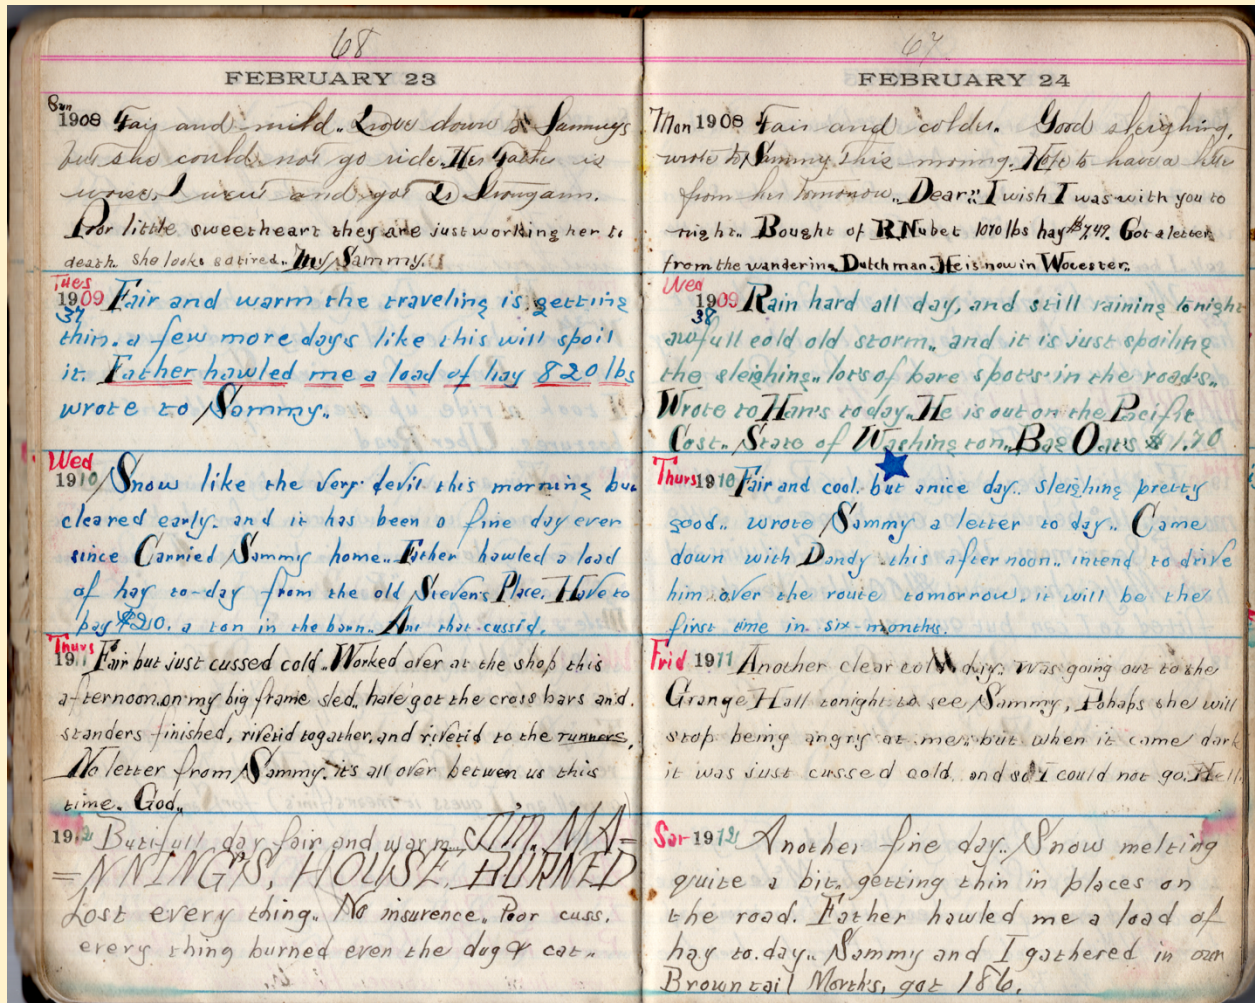 68
FEBRUARY 23
Sun
1908 Fair and mild.. Drove down to Sammys
but she could not go ride. Her Father is
worse. I went and got
Poor little sweetheart they are just working her to
death. she looks so tired.. My Sammy.
Tues
1909 Fair and warm the traveling is getting
37
thin. a few more days like this will spoil
it. Father hawled me a load of hay 820 lbs
wrote to Sammy..
Wed
1910 Snow like the very devil this morning but
cleared early. and it has been a fine day ever
since Carried Sammy home.. Father hawled a load
of hay to-day from the old Stevens Place. Have to
pay $20. a ton in the barn.. Ant that cussid.
Thurs
1911 Fair but just cussed cold.. Worked over at the shop this
afternoon.on my big frame sled.. have got the cross bars and.
standers finished, rivetid togather, and rivetid to the runners.
No letter from Sammy. it's all over betwen us this
time. God..
1912 Butifull day fair and warm.. JIM. MA=
=NNING'S. HOUSE. BURNED
Lost every thing.. No insurence.. Poor cuss.
every thing burned even the dog & cat..
67
FEBRUARY 24
Mon 1908 Fair and colder. Good sleighing.
wrote to Sammy this morning. Hope to have a letter
from her tomorrow.. Dear.. I wish I was with you to
night.. Bought of R Nubet 1070 lbs hay $7.49. Got a letter
from the wandering Dutchman. He is now in Wocester..
Wed
1909 Rain hard all day, and still raining tonight
38
awfull cold old storm.. and it is just spoiling
the sleighing.. lots of bare spot's in the road's..
Wrote to Han's today.. He is out on the Pacific
Cost.. State of Washington.. Bag Oats $1.70
Thurs 1910 Fair and cool. but a nice day.. sleighing pretty
good.. wrote Sammy a letter to day.. Came
down with Dandy this afternoon.. intend to drive
him over the route tomorrow.. it will be the
first time in six-months.
Frid 1911 Another clear cold day.. Was going out to the
Grange Hall tonight to see Sammy, Pohaps she will
stop being angry at me.. but when it came dark
it was just cussed cold. and so I could not go. Hell.
Sat 1912 Another fine day.. Snow melting
quite a bit.. getting thin in places on
the road. Father hawled me a load of
hay to.day.. Sammy and I gathered in our
Browntail Moth's, got 186.